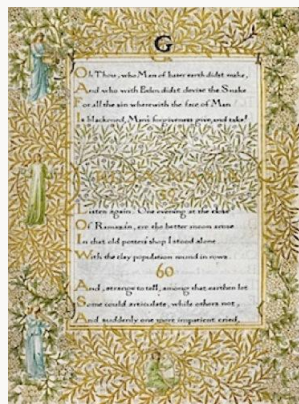 G
Oh Thou, who Man of baser earth didst make,
And who with Eden didst devise the Snake
For all the sin wherewith the face of Man
Is blackened, Man's forgiveness give, and take!
Listen again. One evening at the close
Of Ramazán, ere the better moon arose
In that old potter's shop I stood alone
With the clay population round in rows
60
And, strange to tell, among that earthen lot
Some could articulate, while others not,
And suddenly one more impatient cried,